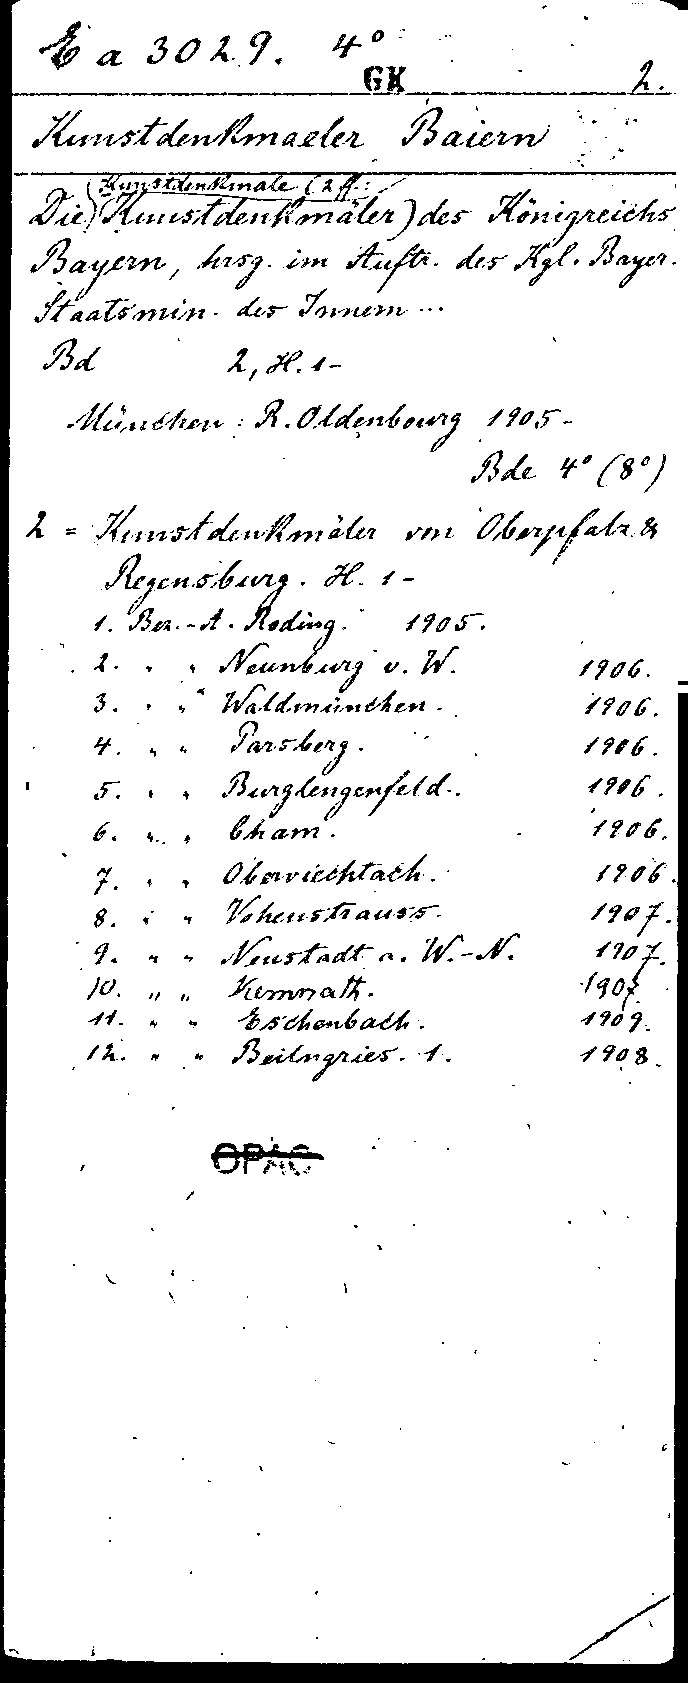 E a 3029. 4°
GK
2.
Kunstdenkmaeler Baiern
Kunstdenkmale (2 ff.:
Die (Kunstdenkmäler) des Königreichs
Bayern, hrsg. im Auftr. des Kgl. Bayer.
Staatsmin. des Innern ...
Bd 2, H. 1-
München: R. Oldenbourg 1905-
Bde 4° (8°)
2 = Kunstdenkmäler von Oberpfalz &
Regensburg. H. 1-
1. Bez.-A. Roding. 1905.
2. " " Neunburg v. W. 1906.
3. " " Waldmünchen. 1906.
4. " " Parsberg. 1906.
5. " " Burglengenfeld. 1906.
6. " " Cham. 1906.
7. " " Oberviechtach. 1906.
8. " " Vohenstrauss. 1907.
9. " " Neustadt a. W.-N. 1907.
10. " " Kemnath. 1907.
11. " " Eschenbach. 1909.
12. " " Beilngries. 1. 1908.
OPAC